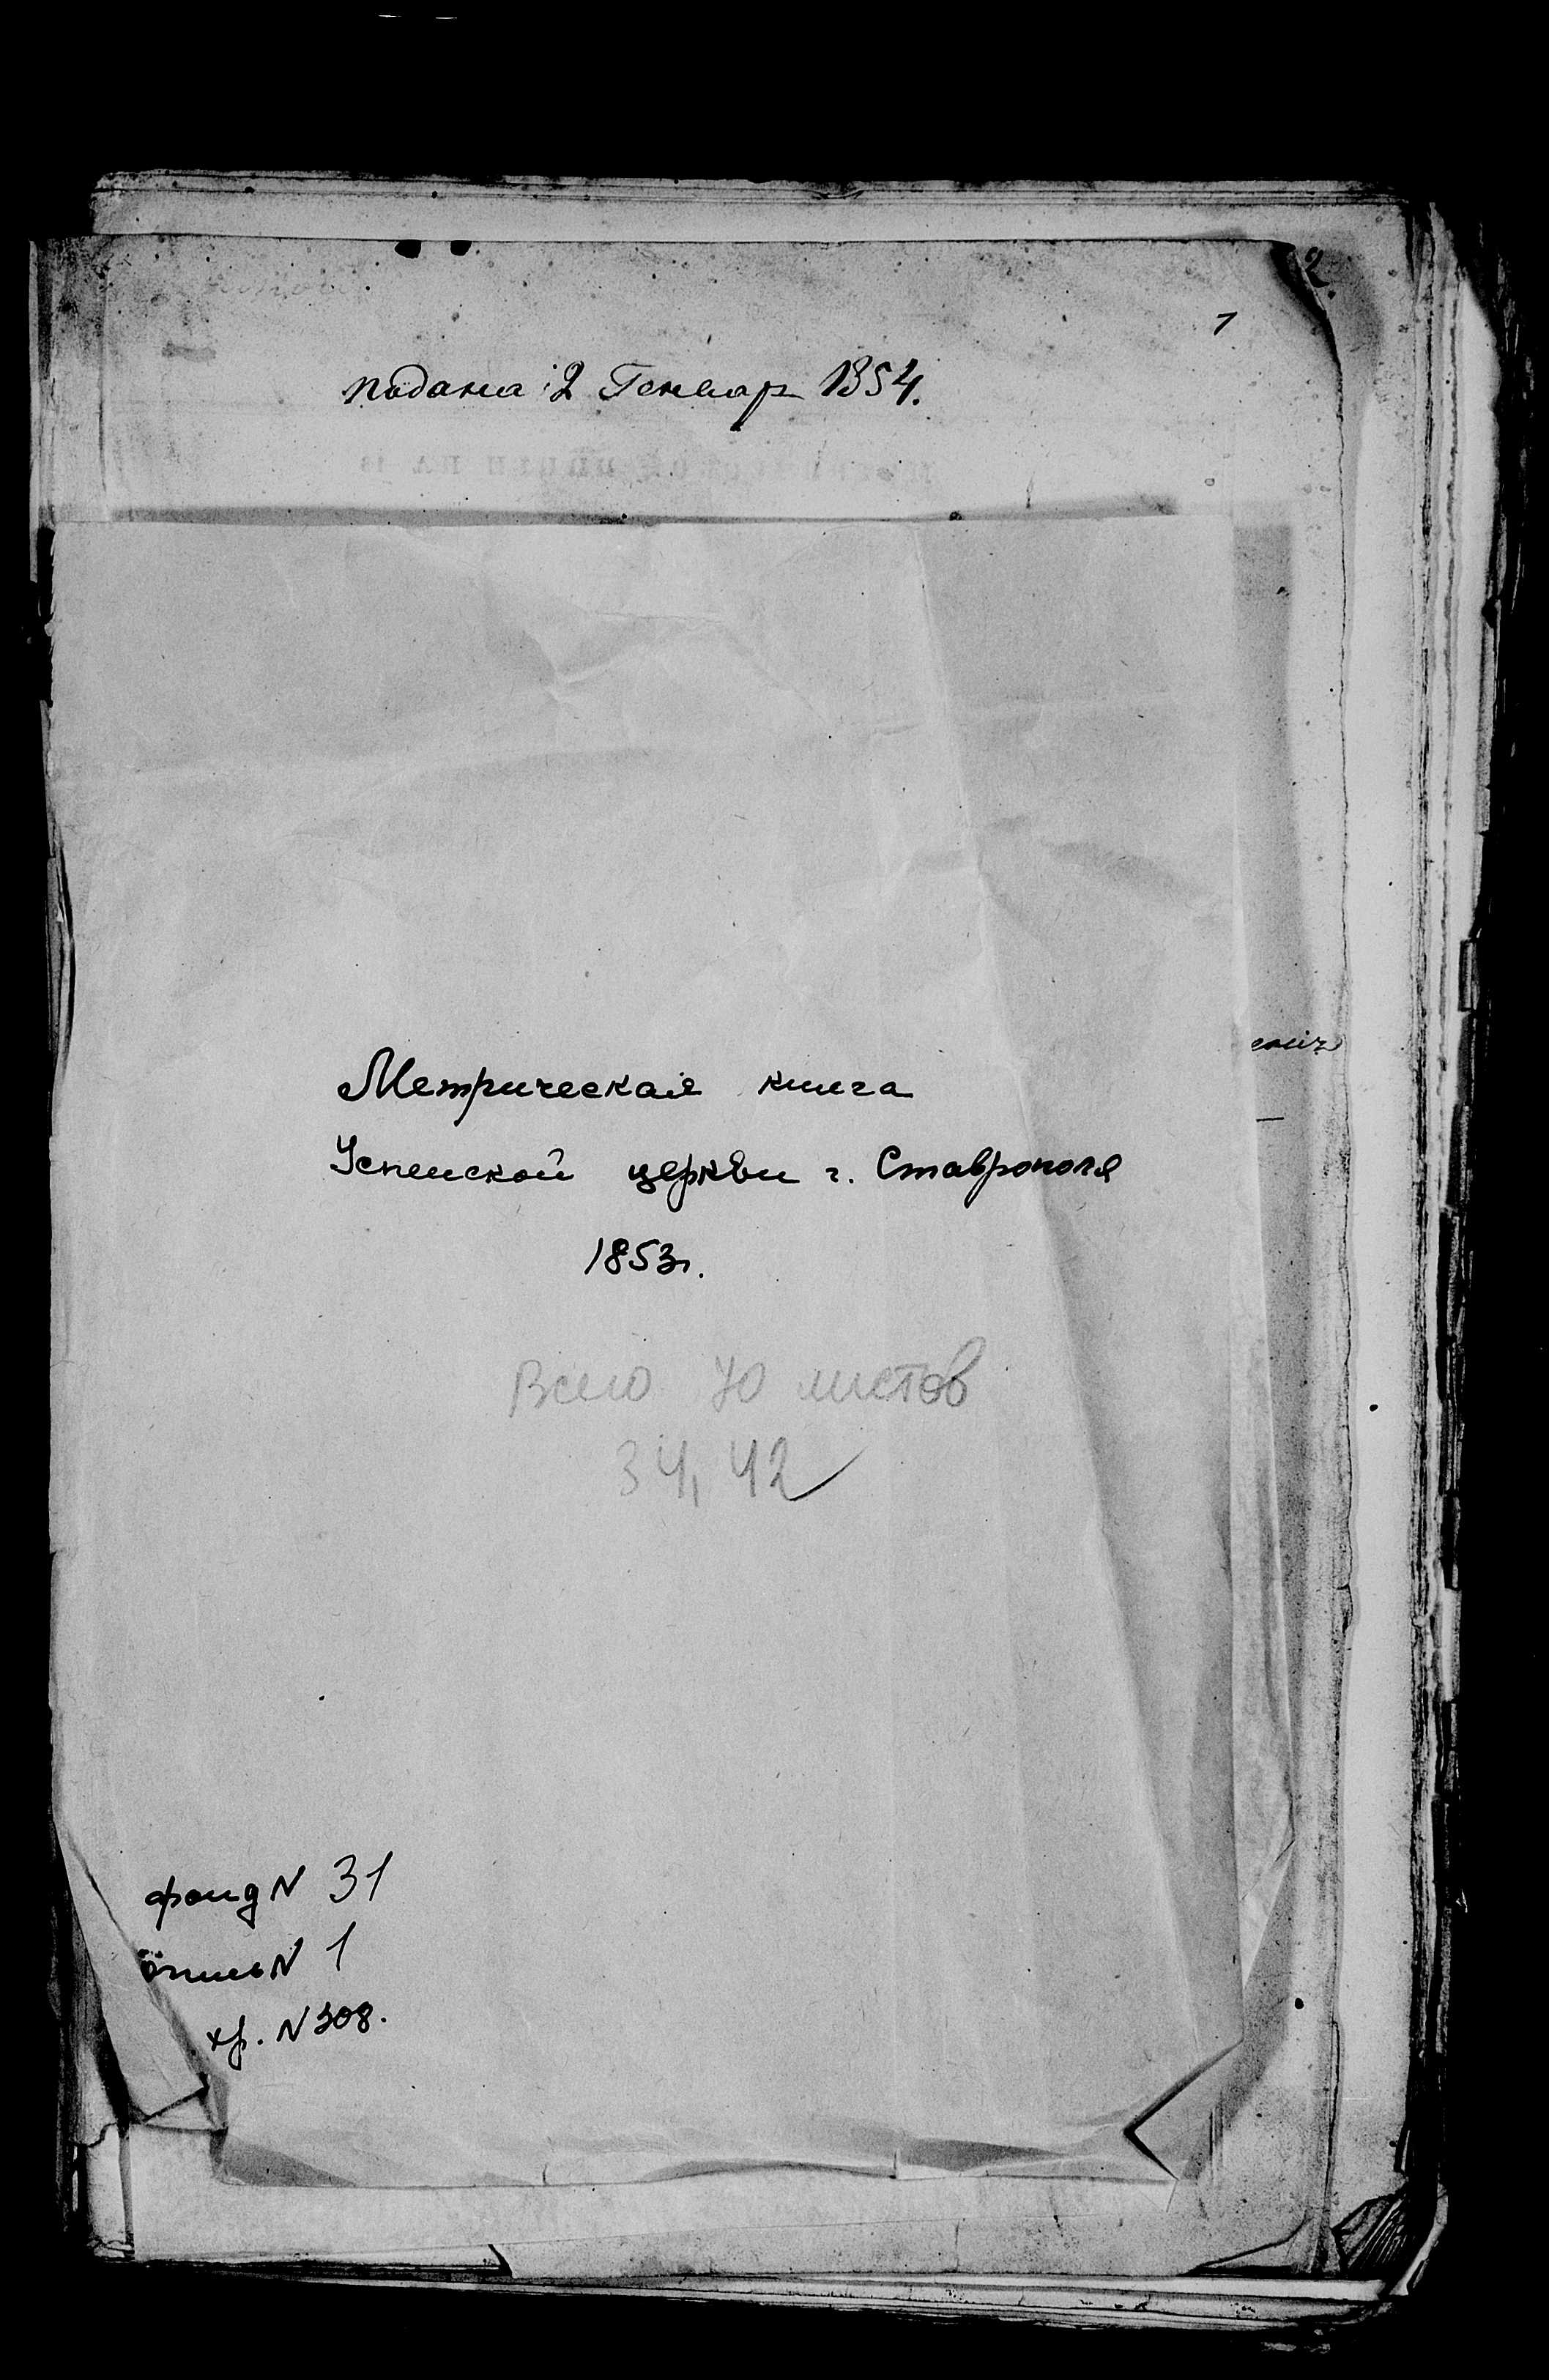 2
1
подана 2 Генвар 1854.
Метрическая книга
Успенской церкви г. Ставрополя
1853г.
Всего 70 листов
34, 42
фонд N 31
опись N 1
хр. N 308.